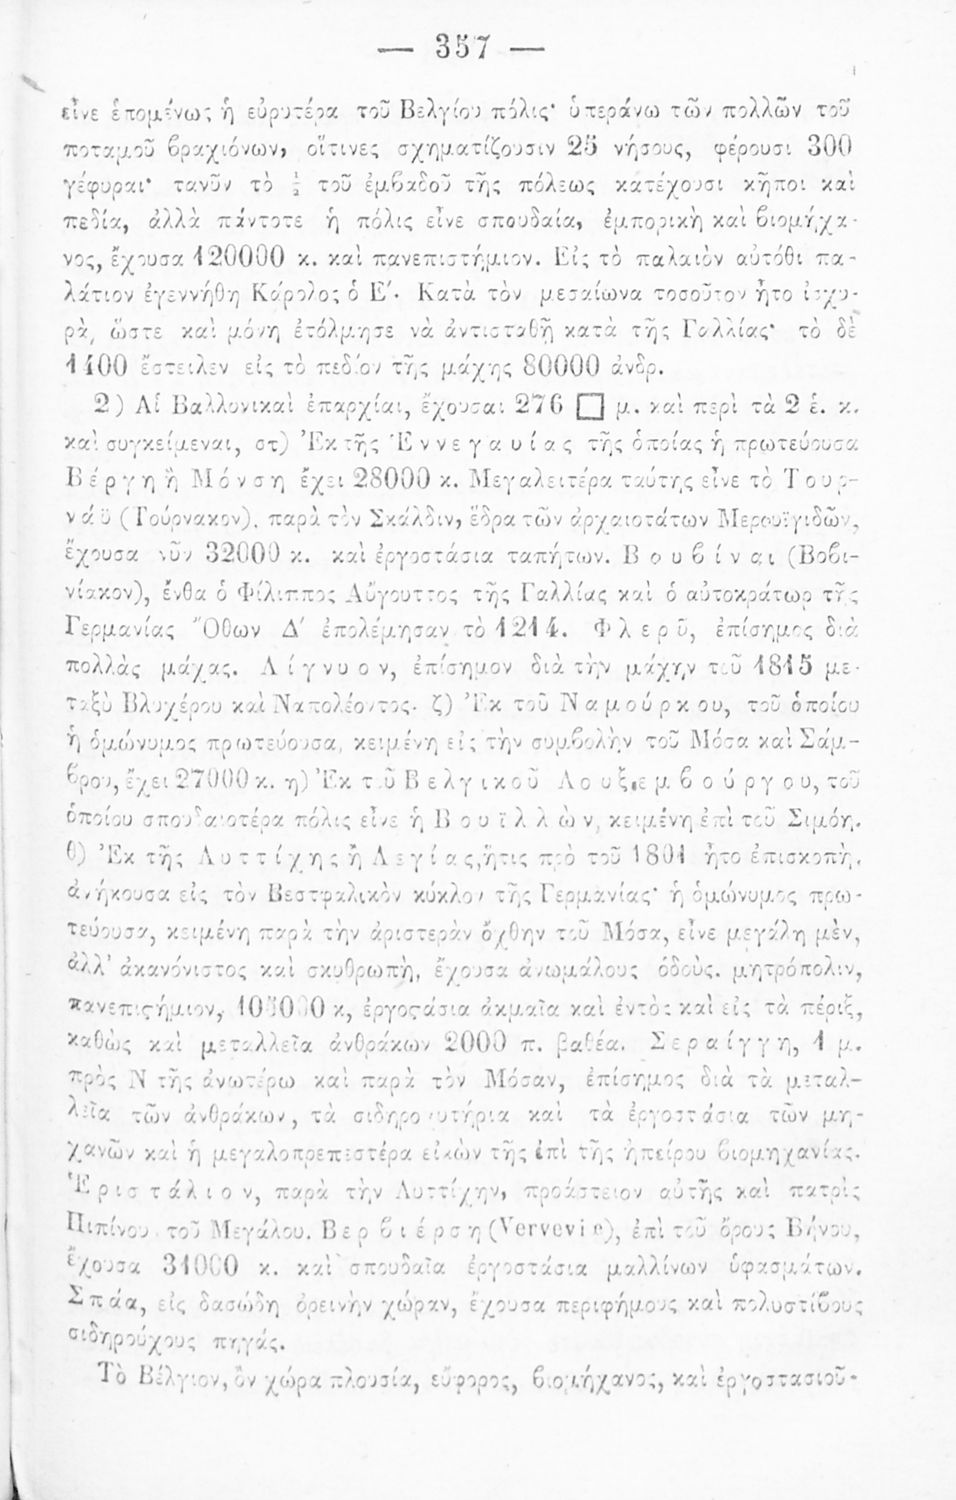 — 357 —
εἶνε ἑπομένως ἡ εὐρυτέρα τοῦ Βελγίου πόλις· ὑπεράνω τῶν πολλῶν τοῦ
ποταμοῦ βραχιόνων, οἵτινες σχηματίζουσιν 25 νήσους, φέρουσι 300
γέφυραι· τανῦν τὸ ½ τοῦ ἐμβαδοῦ τῆς πόλεως κατέχουσι κῆποι καὶ
πεδία, ἀλλὰ πάντοτε ἡ πόλις εἶνε σπουδαία, ἐμπορικὴ καὶ βιομήχα-
νος, ἔχουσα 120000 κ. καὶ πανεπιστήμιον. Εἰς τὸ παλαιὸν αὐτόθι πα-
λάτιον ἐγεννήθη Κάρολος ὁ Ε΄. Κατὰ τὸν μεσαίωνα τοσοῦτον ἦτο ἰσχυ-
ρὰ, ὥστε καὶ μόνη ἐτόλμησε νὰ ἀντισταθῇ κατὰ τῆς Γαλλίας· τὸ δὲ
1400 ἔστειλεν εἰς τὸ πεδίον τῆς μάχης 80000 ἀνδρ.
2) Αἱ Βαλλονικαὶ ἐπαρχίαι, ἔχουσαι 276 □ μ. καὶ περὶ τὰ 2 ἑ. κ.
καὶ συγκείμεναι, στ) Ἐκ τῆς Ἐννεγαυίας τῆς ὁποίας ἡ πρωτεύουσα
Βέργη ἢ Μόνση ἔχει 28000 κ. Μεγαλειτέρα ταύτης εἶνε τὸ Τουρ-
νάϋ (Τούρνακον), παρὰ τὸν Σκάλδιν, ἕδρα τῶν ἀρχαιοτάτων Μεροϋϊγιδῶν,
ἔχουσα νῦν 32000 κ. καὶ ἐργοστάσια ταπήτων. Βουβίναι (Βοβι-
νίακον), ἔνθα ὁ Φίλιππος Αὔγουστος τῆς Γαλλίας καὶ ὁ αὐτοκράτωρ τῆς
Γερμανίας Ὄθων Δ΄ ἐπολέμησαν τὸ 1214. Φλερῦ, ἐπίσημος διὰ
πολλὰς μάχας. Λίγνυον, ἐπίσημον διὰ τὴν μάχην τοῦ 1815 με-
ταξὺ Βλυχέρου καὶ Ναπολέοντος. ζ) Ἐκ τοῦ Ναμούρκου, τοῦ ὁποίου
ἡ ὁμώνυμος πρωτεύουσα, κειμένη εἰς τὴν συμβολὴν τοῦ Μόσα καὶ Σάμ-
βρου, ἔχει 27000 κ. η) Ἐκ τοῦ Βελγικοῦ Λουξεμβούργου, τοῦ
ὁποίου σπουδαιοτέρα πόλις εἶνε ἡ Βουϊλλὼν, κειμένη ἐπὶ τοῦ Σιμόη.
θ) Ἐκ τῆς Λυττίχης ἢ Λεγίας, ἥτις πρὸ τοῦ 1801 ἦτο ἐπισκοπὴ,
ἀνήκουσα εἰς τὸν Βεστφαλικὸν κύκλον τῆς Γερμανίας· ἡ ὁμώνυμος πρω-
τεύουσα, κειμένη παρὰ τὴν ἀριστερὰν ὄχθην τοῦ Μόσα, εἶνε μεγάλη μὲν,
ἀλλ' ἀκανόνιστος καὶ σκυθρωπὴ, ἔχουσα ἀνωμάλους ὁδοὺς, μητρόπολιν,
πανεπιςήμιον, κ, ἐργοςάσια ἀκμαῖα καὶ ἐντὸς καὶ εἰς τὰ πέριξ,
καθὼς καὶ μεταλλεῖα ἀνθράκων 2000 π. βαθέα. Σεραίγγη, 1 μ.
πρὸς Ν τῆς ἀνωτέρω καὶ παρὰ τὸν Μόσαν, ἐπίσημος διὰ τὰ μεταλ-
λεῖα τῶν ἀνθράκων, τὰ σιδηροχυτήρια καὶ τὰ ἐργοστάσια τῶν μη-
χανῶν καὶ ἡ μεγαλοπρεπεστέρα εἰκὼν τῆς ἐπὶ τῆς ἠπείρου βιομηχανίας.
Ἐριστάλιον, παρὰ τὴν Λυττίχην, προάστειον αὐτῆς καὶ πατρὶς
Πιπίνου τοῦ Μεγάλου. Βερβιέρση (Vervevie), ἐπὶ τοῦ ὄρους Βήνου,
ἔχουσα 31000 κ. καὶ σπουδαῖα ἐργοστάσια μαλλίνων ὑφασμάτων.
Σπάα, εἰς δασώδη ὀρεινὴν χώραν, ἔχουσα περιφήμους καὶ πολυστίβους
σιδηρούχους πηγάς.
Τὸ Βέλγιον, ὂν χώρα πλουσία, εὔφορος, βιομήχανος, καὶ ἐργοστασιοῦ-